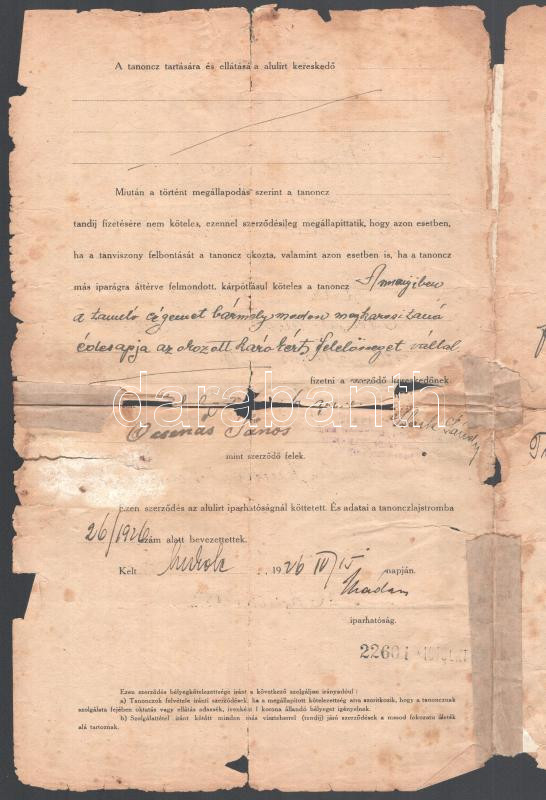 A tanoncz tartására és ellátására alulirt kereskedő
Miután a történt megállapodás szerint a tanoncz
tandij fizetésére nem köteles, ezennel szerződésileg megállapittatik, hogy azon esetben,
ha a tanviszony felbontását a tanoncz okozta, valamint azon esetben is, ha a tanoncz
más iparágra áttérve felmondott, kárpótlásul köteles a tanoncz Amenyiben
a tanuló cégemet bármely modon megkarositaná
édesapja az okozott karókért, felelőseget vállal.
fizetni a szerződő kereskedőnek.
darabanth
János
mint szerződő felek.
Ezen szerződés az alulirt iparhatóságnál köttetett. És adatai a tanonczlajstromba
26/1926 szám alatt bevezettettek.
Kelt 1926 IV/15 napján.
iparhatóság.
2260
Ezen szerződés bélyegkötelezettsége iránt a következő szolgáljon irányadóul:
a) Tanonczok felvétele iránti szerződések, ha a megállapitott kötelezettség arra szoritkozik, hogy a tanoncznak
szolgálata fejében oktatás vagy ellátás adassék, ivenként 1 korona állandó bélyeget igényelnek.
b) Szolgálattétel iránt kötött minden más viszteherrel (tandij) járó szerződések a rossod fokozatu illeték
alá tartoznak.